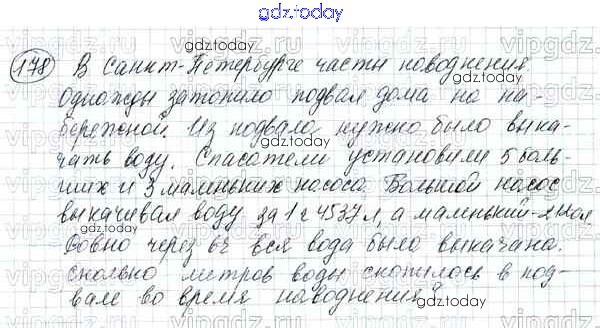 gdz.today
178 В Санкт-Петербурге часты наводнения.
Однажды затопило подвал дома на на-
бережной. Из подвала нужно было выка-
чать воду. Спасатели установили 5 боль-
ших и 3 маленьких насоса. Большой насос
выкачивал воду за 1 ч 4537 л, а маленький-
Ровно через 6ч вся вода была выкачана.
Сколько литров воды скопилось в под-
вале во время наводнения?
gdz.today